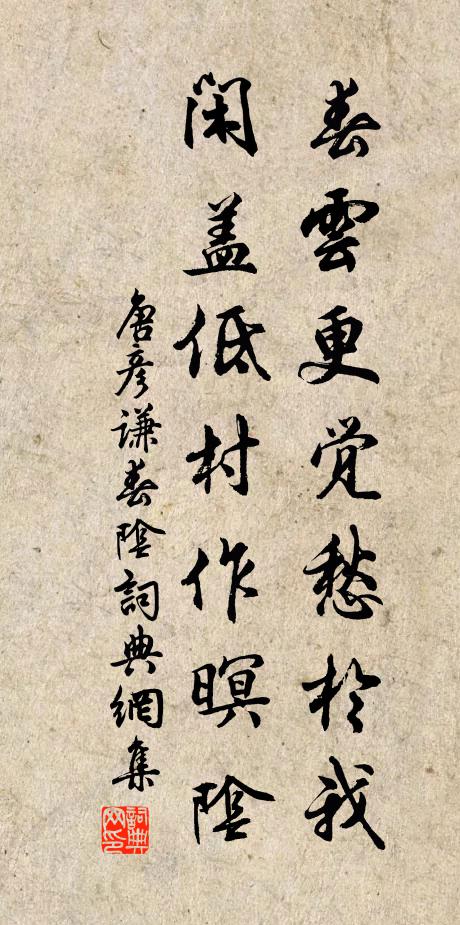 春雲更覺愁於我
閑盖低村作暝陰
唐彦謙春陰詞典網集
詞典網印